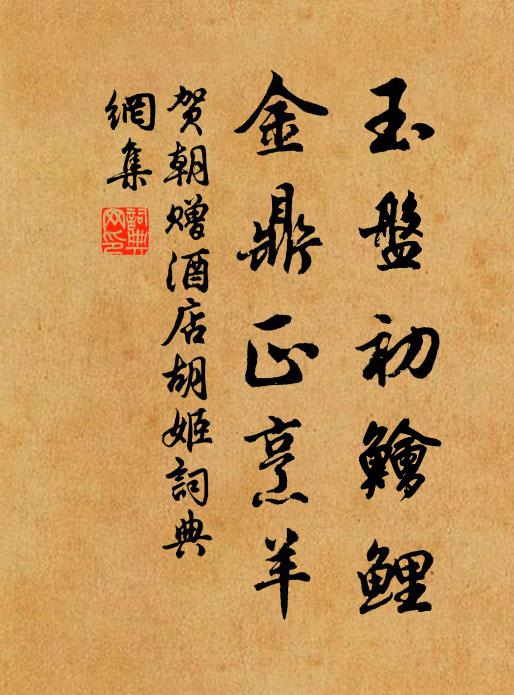 玉盤初鱠鯉
金鼎正烹羊
贺朝赠酒店胡姬詞典
網集
詞典
网印